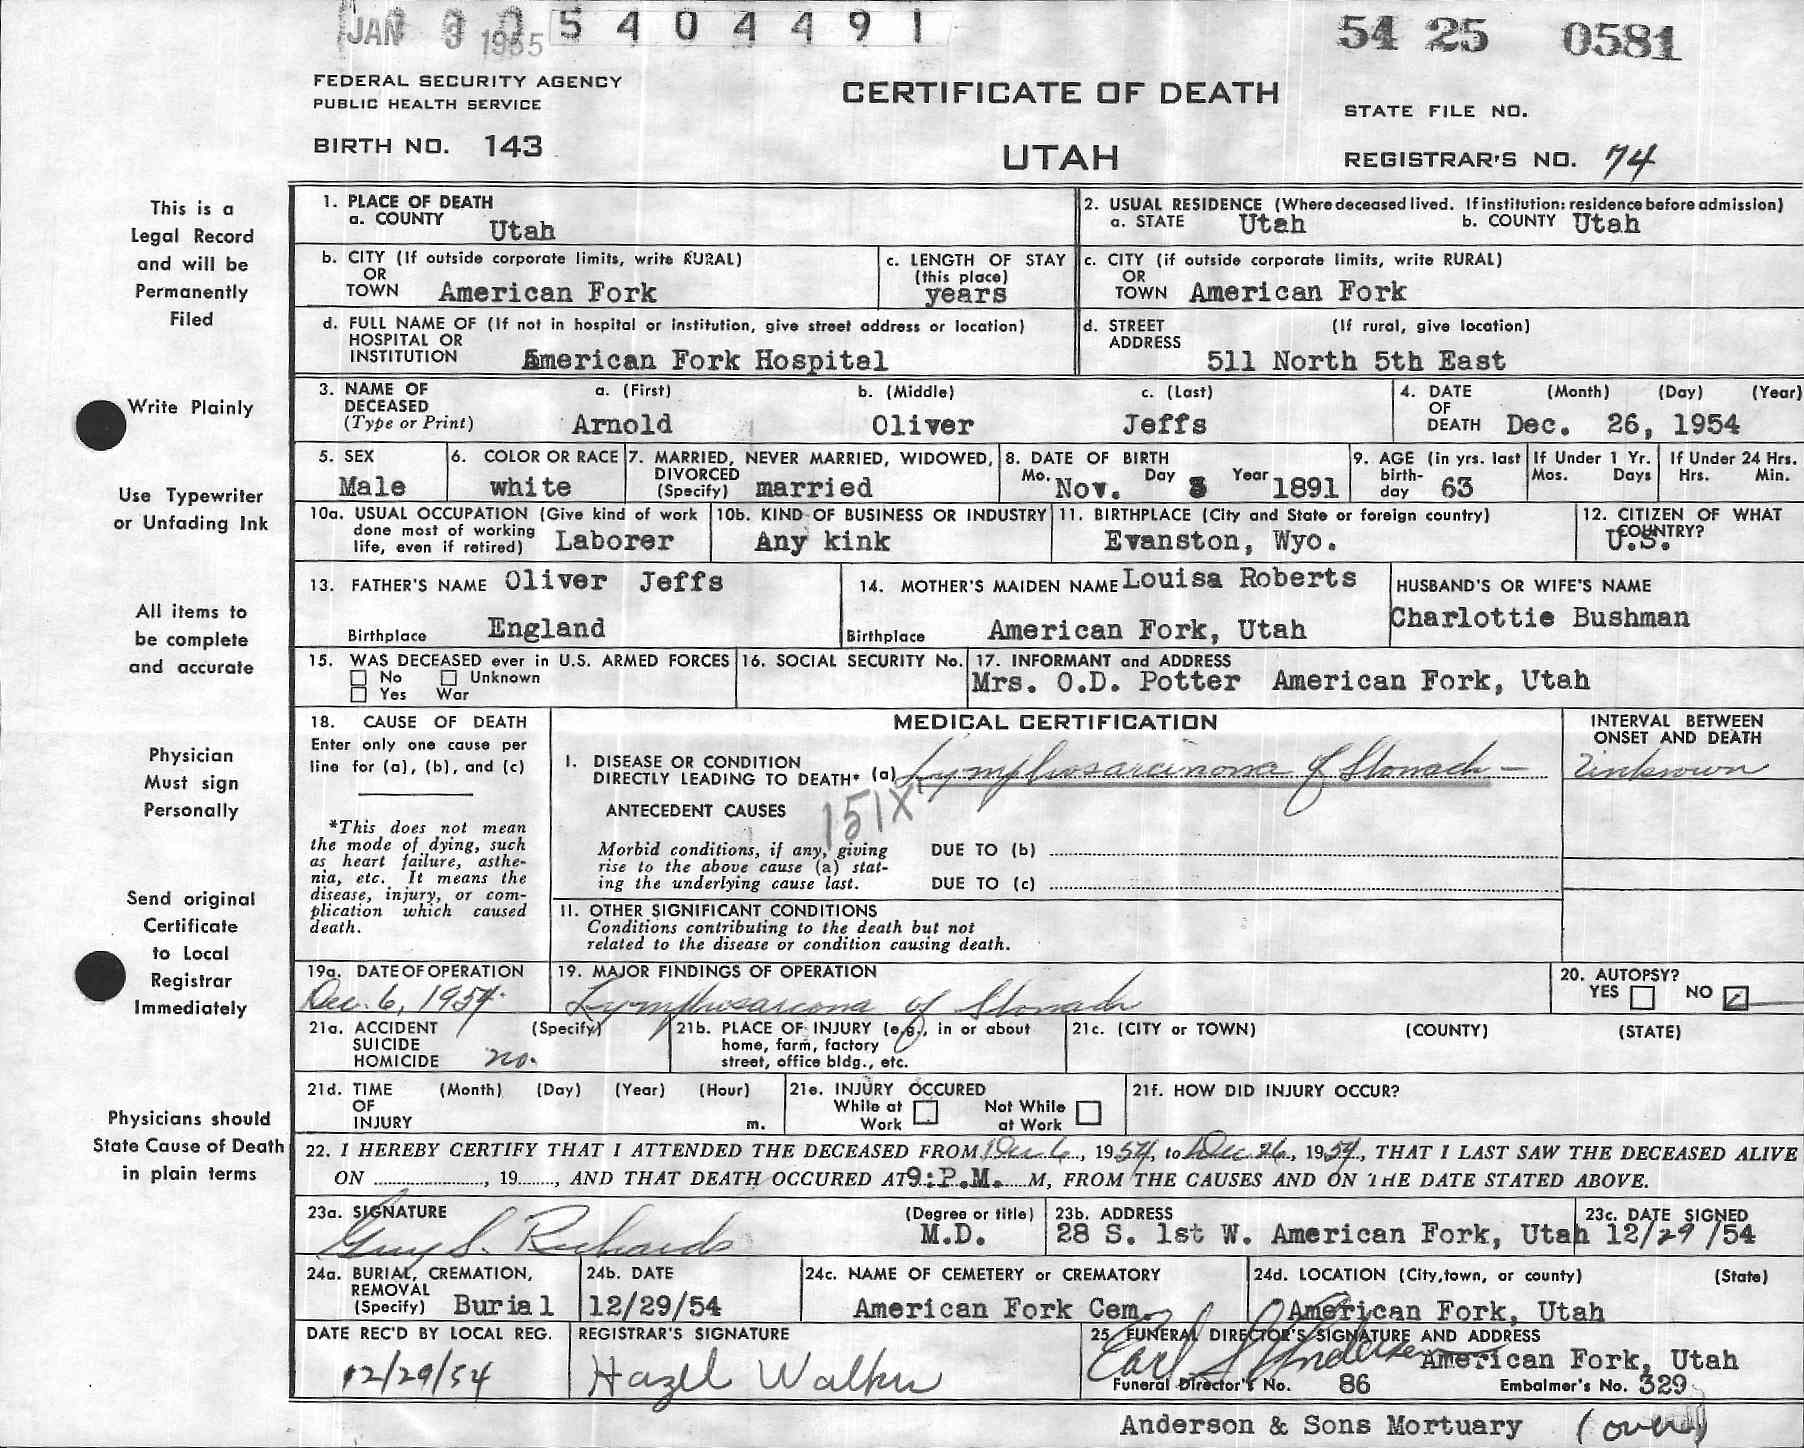 JAN 3 0 1955 5 4 0 4 4 9 1
54 25 0581
FEDERAL SECURITY AGENCY
PUBLIC HEALTH SERVICE
BIRTH NO. 143
CERTIFICATE OF DEATH
UTAH
STATE FILE NO.
REGISTRAR'S NO. 74
This is a
Legal Record
and will be
Permanently
Filed
Write Plainly
Use Typewriter
or Unfading Ink
All items to
be complete
and accurate
Physician
Must sign
Personally
Send original
Certificate
to Local
Registrar
Immediately
Physicians should
State Cause of Death
in plain terms
1. PLACE OF DEATH
a. COUNTY Utah
2. USUAL RESIDENCE (Where deceased lived. If institution: residence before admission)
a. STATE Utah b. COUNTY Utah
b. CITY (If outside corporate limits, write RURAL)
OR
TOWN American Fork
c. LENGTH OF STAY
(this place)
years
c. CITY (if outside corporate limits, write RURAL)
OR
TOWN American Fork
d. FULL NAME OF (If not in hospital or institution, give street address or location)
HOSPITAL OR
INSTITUTION American Fork Hospital
d. STREET (If rural, give location)
ADDRESS
511 North 5th East
3. NAME OF a. (First) b. (Middle) c. (Last)
DECEASED
(Type or Print) Arnold Oliver Jeffs
4. DATE (Month) (Day) (Year)
OF
DEATH Dec. 26, 1954
5. SEX
Male
6. COLOR OR RACE
white
7. MARRIED, NEVER MARRIED, WIDOWED,
DIVORCED
(Specify) married
8. DATE OF BIRTH
Mo. Nov. Day 3 Year 1891
9. AGE (in yrs. last
birth-
day 63
If Under 1 Yr.
Mos. Days
If Under 24 Hrs.
Hrs. Min.
10a. USUAL OCCUPATION (Give kind of work
done most of working
life, even if retired) Laborer
10b. KIND OF BUSINESS OR INDUSTRY
Any kink
11. BIRTHPLACE (City and State or foreign country)
Evanston, Wyo.
12. CITIZEN OF WHAT
COUNTRY?
U.S.
13. FATHER'S NAME Oliver Jeffs
Birthplace England
14. MOTHER'S MAIDEN NAME Louisa Roberts
Birthplace American Fork, Utah
HUSBAND'S OR WIFE'S NAME
Charlottie Bushman
15. WAS DECEASED ever in U.S. ARMED FORCES
No Unknown
Yes War
16. SOCIAL SECURITY No.
17. INFORMANT and ADDRESS
Mrs. O.D. Potter American Fork, Utah
18. CAUSE OF DEATH
Enter only one cause per
line for (a), (b), and (c)
*This does not mean
the mode of dying, such
as heart failure, asthe-
nia, etc. It means the
disease, injury, or com-
plication which caused
death.
MEDICAL CERTIFICATION
I. DISEASE OR CONDITION
DIRECTLY LEADING TO DEATH* (a) Lymphosarcinoma of Stomach –
ANTECEDENT CAUSES
151X
Morbid conditions, if any, giving
rise to the above cause (a) stat-
ing the underlying cause last.
DUE TO (b)
DUE TO (c)
INTERVAL BETWEEN
ONSET AND DEATH
Unknown
11. OTHER SIGNIFICANT CONDITIONS
Conditions contributing to the death but not
related to the disease or condition causing death.
19a. DATE OF OPERATION
Dec. 6, 1954.
19. MAJOR FINDINGS OF OPERATION
Lymphosarcoma of Stomach
20. AUTOPSY?
YES NO
21a. ACCIDENT (Specify)
SUICIDE
HOMICIDE no.
21b. PLACE OF INJURY (e.g., in or about
home, farm, factory
street, office bldg., etc.
21c. (CITY or TOWN) (COUNTY) (STATE)
21d. TIME (Month) (Day) (Year) (Hour)
OF
INJURY m.
21e. INJURY OCCURED
While at Work Not While at Work
21f. HOW DID INJURY OCCUR?
22. I HEREBY CERTIFY THAT I ATTENDED THE DECEASED FROM Dec. 6, 1954, to Dec 26, 1954, THAT I LAST SAW THE DECEASED ALIVE
ON ..., 19..., AND THAT DEATH OCCURED AT 9:P.M. M, FROM THE CAUSES AND ON THE DATE STATED ABOVE.
23a. SIGNATURE (Degree or title)
Guy S. Richards M.D.
23b. ADDRESS
28 S. 1st W. American Fork, Utah
23c. DATE SIGNED
12/29/54
24a. BURIAL, CREMATION,
REMOVAL
(Specify) Burial
24b. DATE
12/29/54
24c. NAME OF CEMETERY or CREMATORY
American Fork Cem.
24d. LOCATION (City, town, or county) (State)
American Fork, Utah
DATE REC'D BY LOCAL REG.
12/29/54
REGISTRAR'S SIGNATURE
Hazel Walker
25. FUNERAL DIRECTOR'S SIGNATURE AND ADDRESS
Earl S Anderson American Fork, Utah
Funeral Director's No. 86 Embalmer's No. 329
Anderson & Sons Mortuary (over)